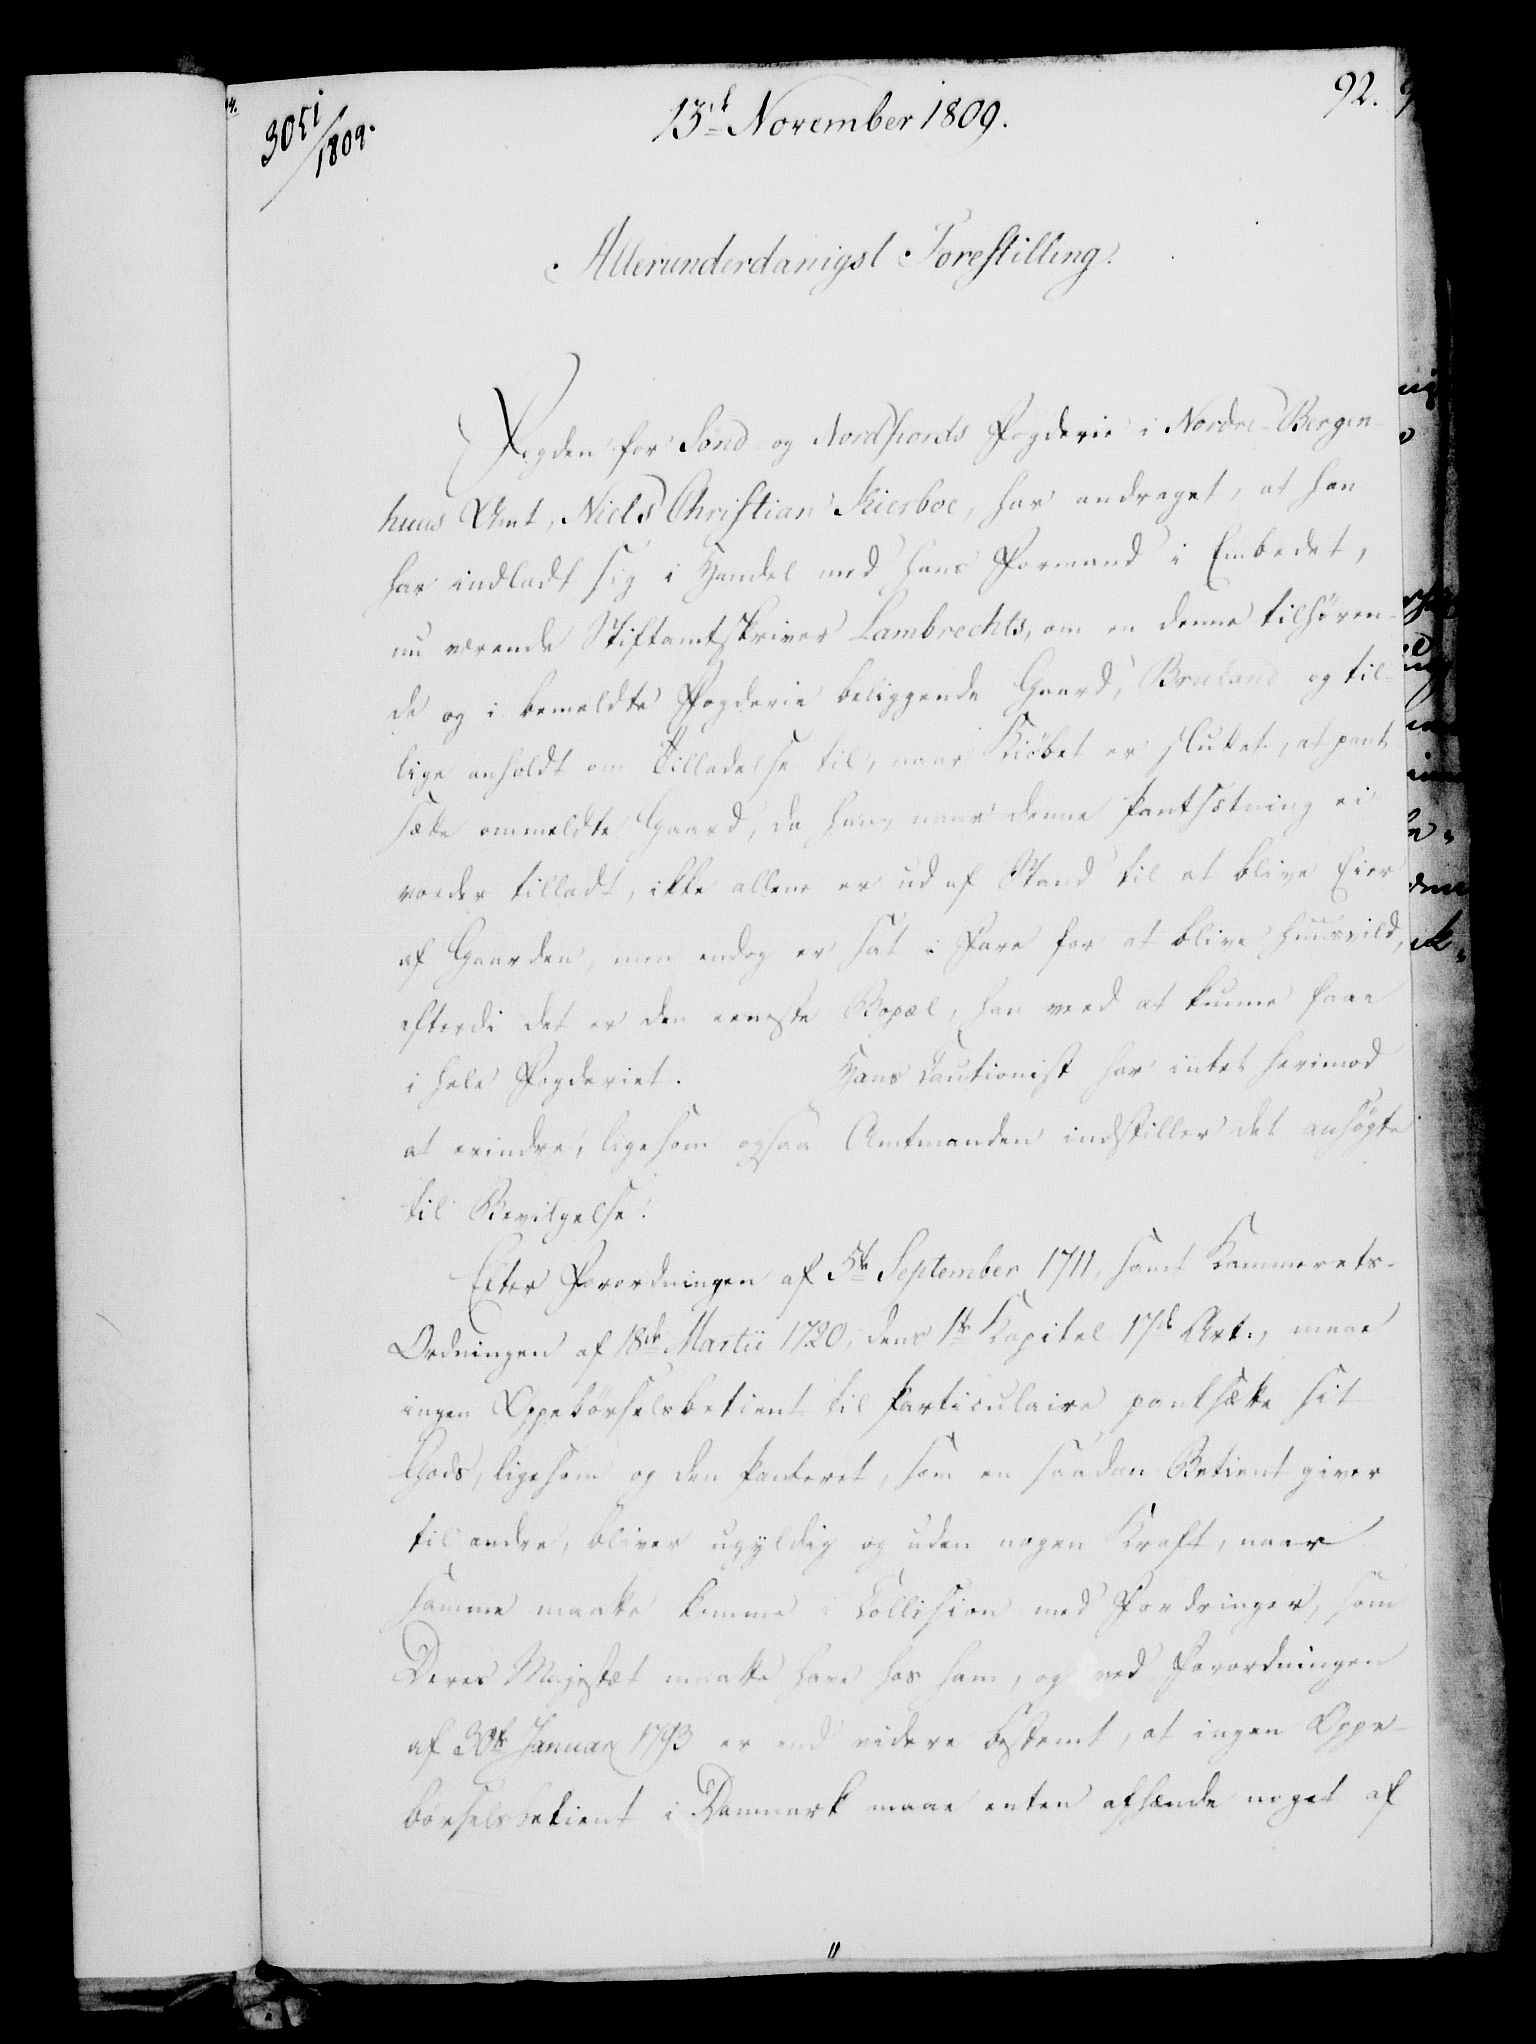 3051/1809.
13de November 1809.
92.
Allerunderdanigst Forestilling.
Fogden for Sønd- og Nordfiords Fogderie i Nordre-Bergen-
huus Amt, Niels Christian Kierboe, har andraget, at han
har indladt sig i Handel med hans Formand i Embedet,
nu værende Stiftamtskriver Lambrechts, om en denne tilhøren-
de og i bemeldte Fogderie beliggende Gaard, Bruland og til-
lige anholdt om Tilladelse til, naar Kiøbet er sluttet, at pant
sætte ommeldte Gaard, da han, naar denne Pantsætning ei
vorder tilladt, ikke allene er ud af Stand til at blive Eier
af Gaarden, men endog er sat i Fare for at blive huusvild,
efterdi det er den eeneste Bopæl, han veed at kunne faae
i hele Fogderiet. Hans Cautionist har intet herimod
at erindre, ligesom ogsaa Amtmanden indstiller det ansøgte
til Bevilgelse.
Efter Forordningen af 5te September 1711, samt Kammerets-
Ordningen af 18de Martii 1720, dens 1te Kapitel 17de Art., maae
ingen Oppebørselsbetient til Particulaire pantsætte sit
Gods, ligesom og den Panteret, som en saadan Betient giver
til andre, bliver ugyldig og uden nogen Kraft, naar
samme maatte komme i Collision med Fordringer, som
Deres Majestæt maatte have hos ham, og ved Forordningen
af 30te Januar 1793 er end videre bestemt, at ingen Oppe-
børselsbetient i Danmark maae enten afhænde noget af